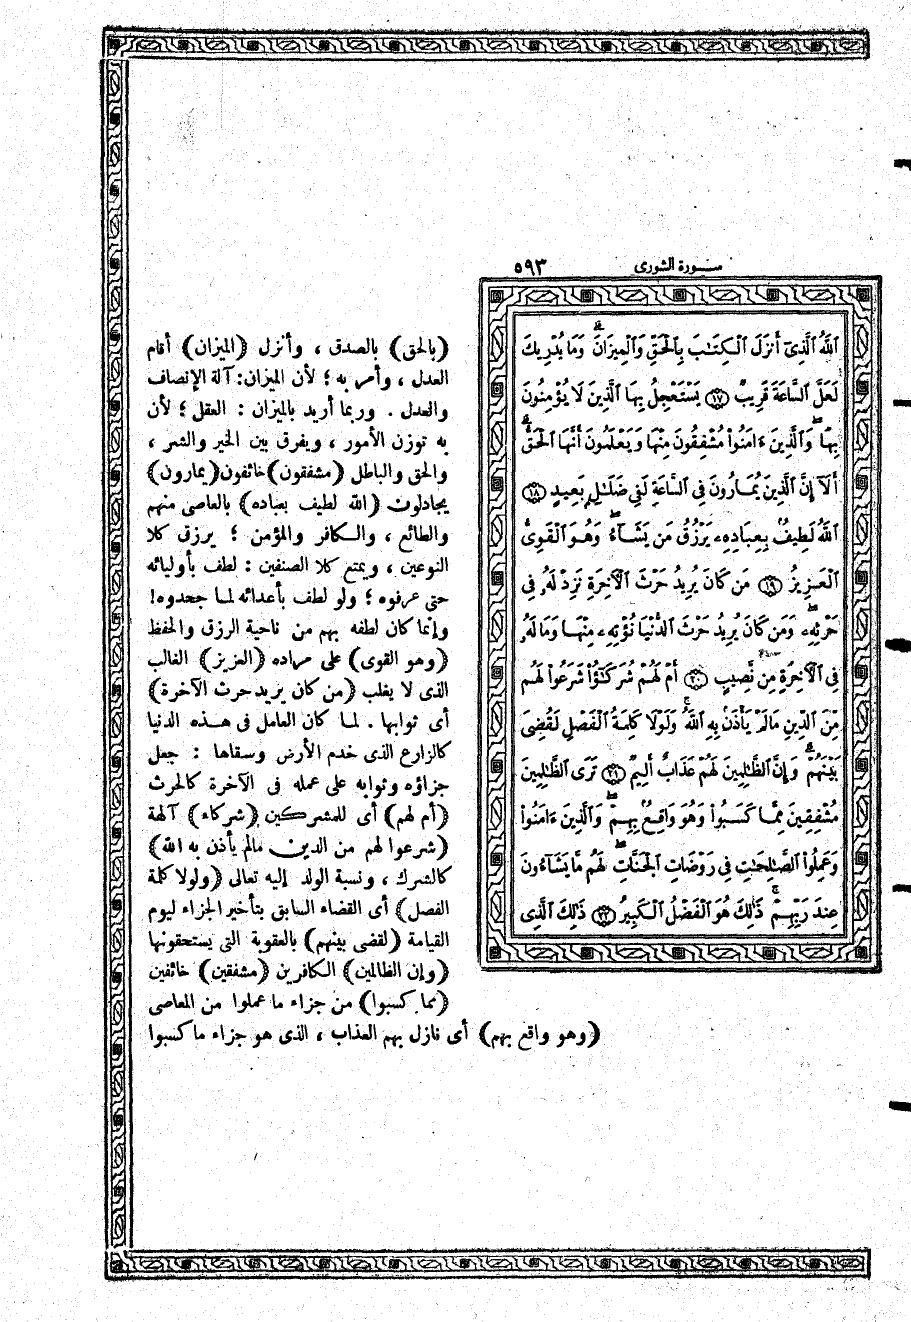 سورة الشورى ٥٩٣
ٱللَّهُ ٱلَّذِىٓ أَنزَلَ ٱلْكِتَـٰبَ بِٱلْحَقِّ وَٱلْمِيزَانَ ۗ وَمَا يُدْرِيكَ
لَعَلَّ ٱلسَّاعَةَ قَرِيبٌ ١٧ يَسْتَعْجِلُ بِهَا ٱلَّذِينَ لَا يُؤْمِنُونَ
بِهَا ۖ وَٱلَّذِينَ ءَامَنُوا۟ مُشْفِقُونَ مِنْهَا وَيَعْلَمُونَ أَنَّهَا ٱلْحَقُّ ۗ
أَلَآ إِنَّ ٱلَّذِينَ يُمَارُونَ فِى ٱلسَّاعَةِ لَفِى ضَلَـٰلٍۭ بَعِيدٍ ١٨
ٱللَّهُ لَطِيفٌۢ بِعِبَادِهِۦ يَرْزُقُ مَن يَشَآءُ ۖ وَهُوَ ٱلْقَوِىُّ
ٱلْعَزِيزُ ١٩ مَن كَانَ يُرِيدُ حَرْثَ ٱلْـَٔاخِرَةِ نَزِدْ لَهُۥ فِى
حَرْثِهِۦ ۖ وَمَن كَانَ يُرِيدُ حَرْثَ ٱلدُّنْيَا نُؤْتِهِۦ مِنْهَا وَمَا لَهُۥ
فِى ٱلْـَٔاخِرَةِ مِن نَّصِيبٍ ٢٠ أَمْ لَهُمْ شُرَكَـٰٓؤُا۟ شَرَعُوا۟ لَهُم
مِّنَ ٱلدِّينِ مَا لَمْ يَأْذَنۢ بِهِ ٱللَّهُ ۚ وَلَوْلَا كَلِمَةُ ٱلْفَصْلِ لَقُضِىَ
بَيْنَهُمْ ۗ وَإِنَّ ٱلظَّـٰلِمِينَ لَهُمْ عَذَابٌ أَلِيمٌ ٢١ تَرَى ٱلظَّـٰلِمِينَ
مُشْفِقِينَ مِمَّا كَسَبُوا۟ وَهُوَ وَاقِعٌۢ بِهِمْ ۗ وَٱلَّذِينَ ءَامَنُوا۟
وَعَمِلُوا۟ ٱلصَّـٰلِحَـٰتِ فِى رَوْضَاتِ ٱلْجَنَّاتِ ۖ لَهُم مَّا يَشَآءُونَ
عِندَ رَبِّهِمْ ۚ ذَٰلِكَ هُوَ ٱلْفَضْلُ ٱلْكَبِيرُ ٢٢ ذَٰلِكَ ٱلَّذِى
(بالحق) بالصدق ، وأنزل (الميزان) أقام
العدل ، وأمر به ؛ لأن الميزان : آلة الإنصاف
والعدل . وربما أريد بالميزان : العقل ؛ لأن
به توزن الأمور ، ويفرق بين الخير والشر ،
والحق والباطل (مشفقون) خائفون (يمارون)
يجادلون (الله لطيف بعباده) بالعاصى منهم
والطائع ، والكافر والمؤمن ؛ يرزق كلا
النوعين ، ويمتع كلا الصنفين : لطف بأوليائه
حتى عرفوه ؛ ولو لطف بأعدائه لما جحدوه !
وإنما كان لطفه بهم من ناحية الرزق والحفظ
(وهو القوى) على مراده (العزيز) الغالب
الذى لا يغلب (من كان يريد حرث الآخرة)
أى ثوابها . لما كان العامل فى هذه الدنيا
كالزارع الذى خدم الأرض وسقاها : جعل
جزاؤه وثوابه على عمله فى الآخرة كالحرث
(أم لهم) أى للمشركين (شركاء) آلهة
(شرعوا لهم من الدين مالم يأذن به الله)
كالشرك ، ونسبة الولد إليه تعالى (ولولا كلمة
الفصل) أى القضاء السابق بتأخير الجزاء ليوم
القيامة (لقضى بينهم) بالعقوبة التى يستحقونها
(وإن الظالمين) الكافرين (مشفقين) خائفين
(مما كسبوا) من جزاء ما عملوا من المعاصى
(وهو واقع بهم) أى نازل بهم العذاب ، الذى هو جزاء ما كسبوا